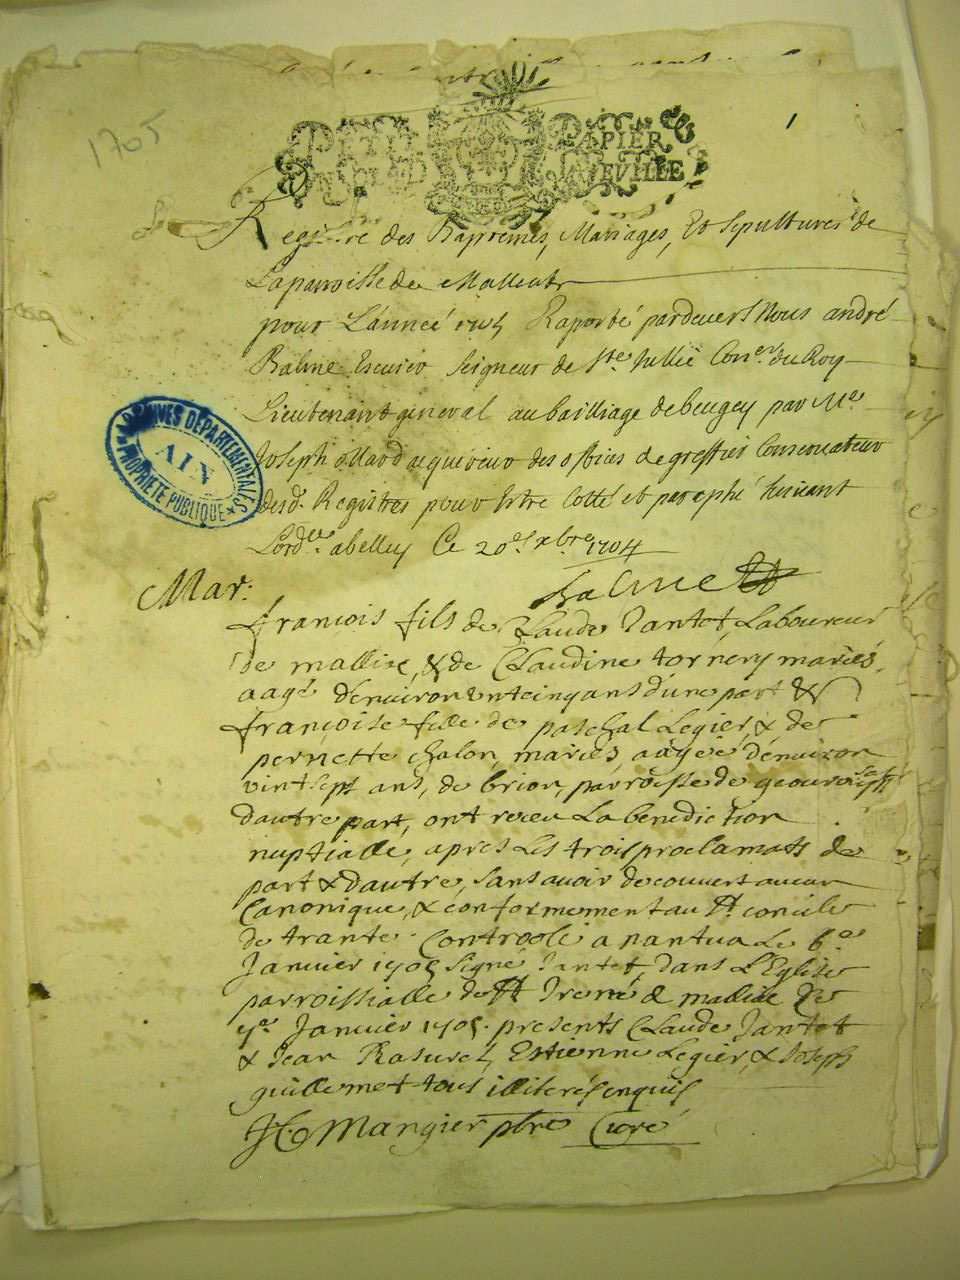 1705
1
PETIT PAPIER
EN PIED TREVILLE
Registre des Baptemes, Mariages, Et Sepultures de
La parroisse de Malleat
pour L'année 1705 Raporté pardevers Nous andré
Balme Escuier Seigneur de Ste Jullie Conser du Roy
Lieutenant general au bailliage de beugey par Me
Joseph aquereur des offices de greffier Conservateur
desd. Registres pour Estre Cotté et paraphé Suivant
Lordce abelley Ce 20e xbre 1704
Balme
ARCHIVES DÉPARTEMENTALES
AIN
PROPRIÉTÉ PUBLIQUE
Mar:
françois fils de Claude Jantet, Laboureur
de malliae, & de Claudine tornery mariés,
aagé d'environ vntcinq ans d'une part &
françoise fille de paschal Legier, & de
pernette chalon, mariés, aagée d'environ
vint sept ans, de brion, parroisse de geovreissiat
dautre part, ont receu La benediction
nuptialle, apres Les trois proclamats de
part & dautre, sans avoir decouvert aucun
Canonique, & conformement au St concile
de trante. Controole a nantua Le 6e
Janvier 1705 signé Jantet, dans L'Eglise
parroissialle de St Irené de malliae Le
7e Janvier 1705. presents Claude Jantet
& Jean Rasurel, Estienne Legier, & Joseph
guillermet tous illiterés enquis
Mangier pbre Curé